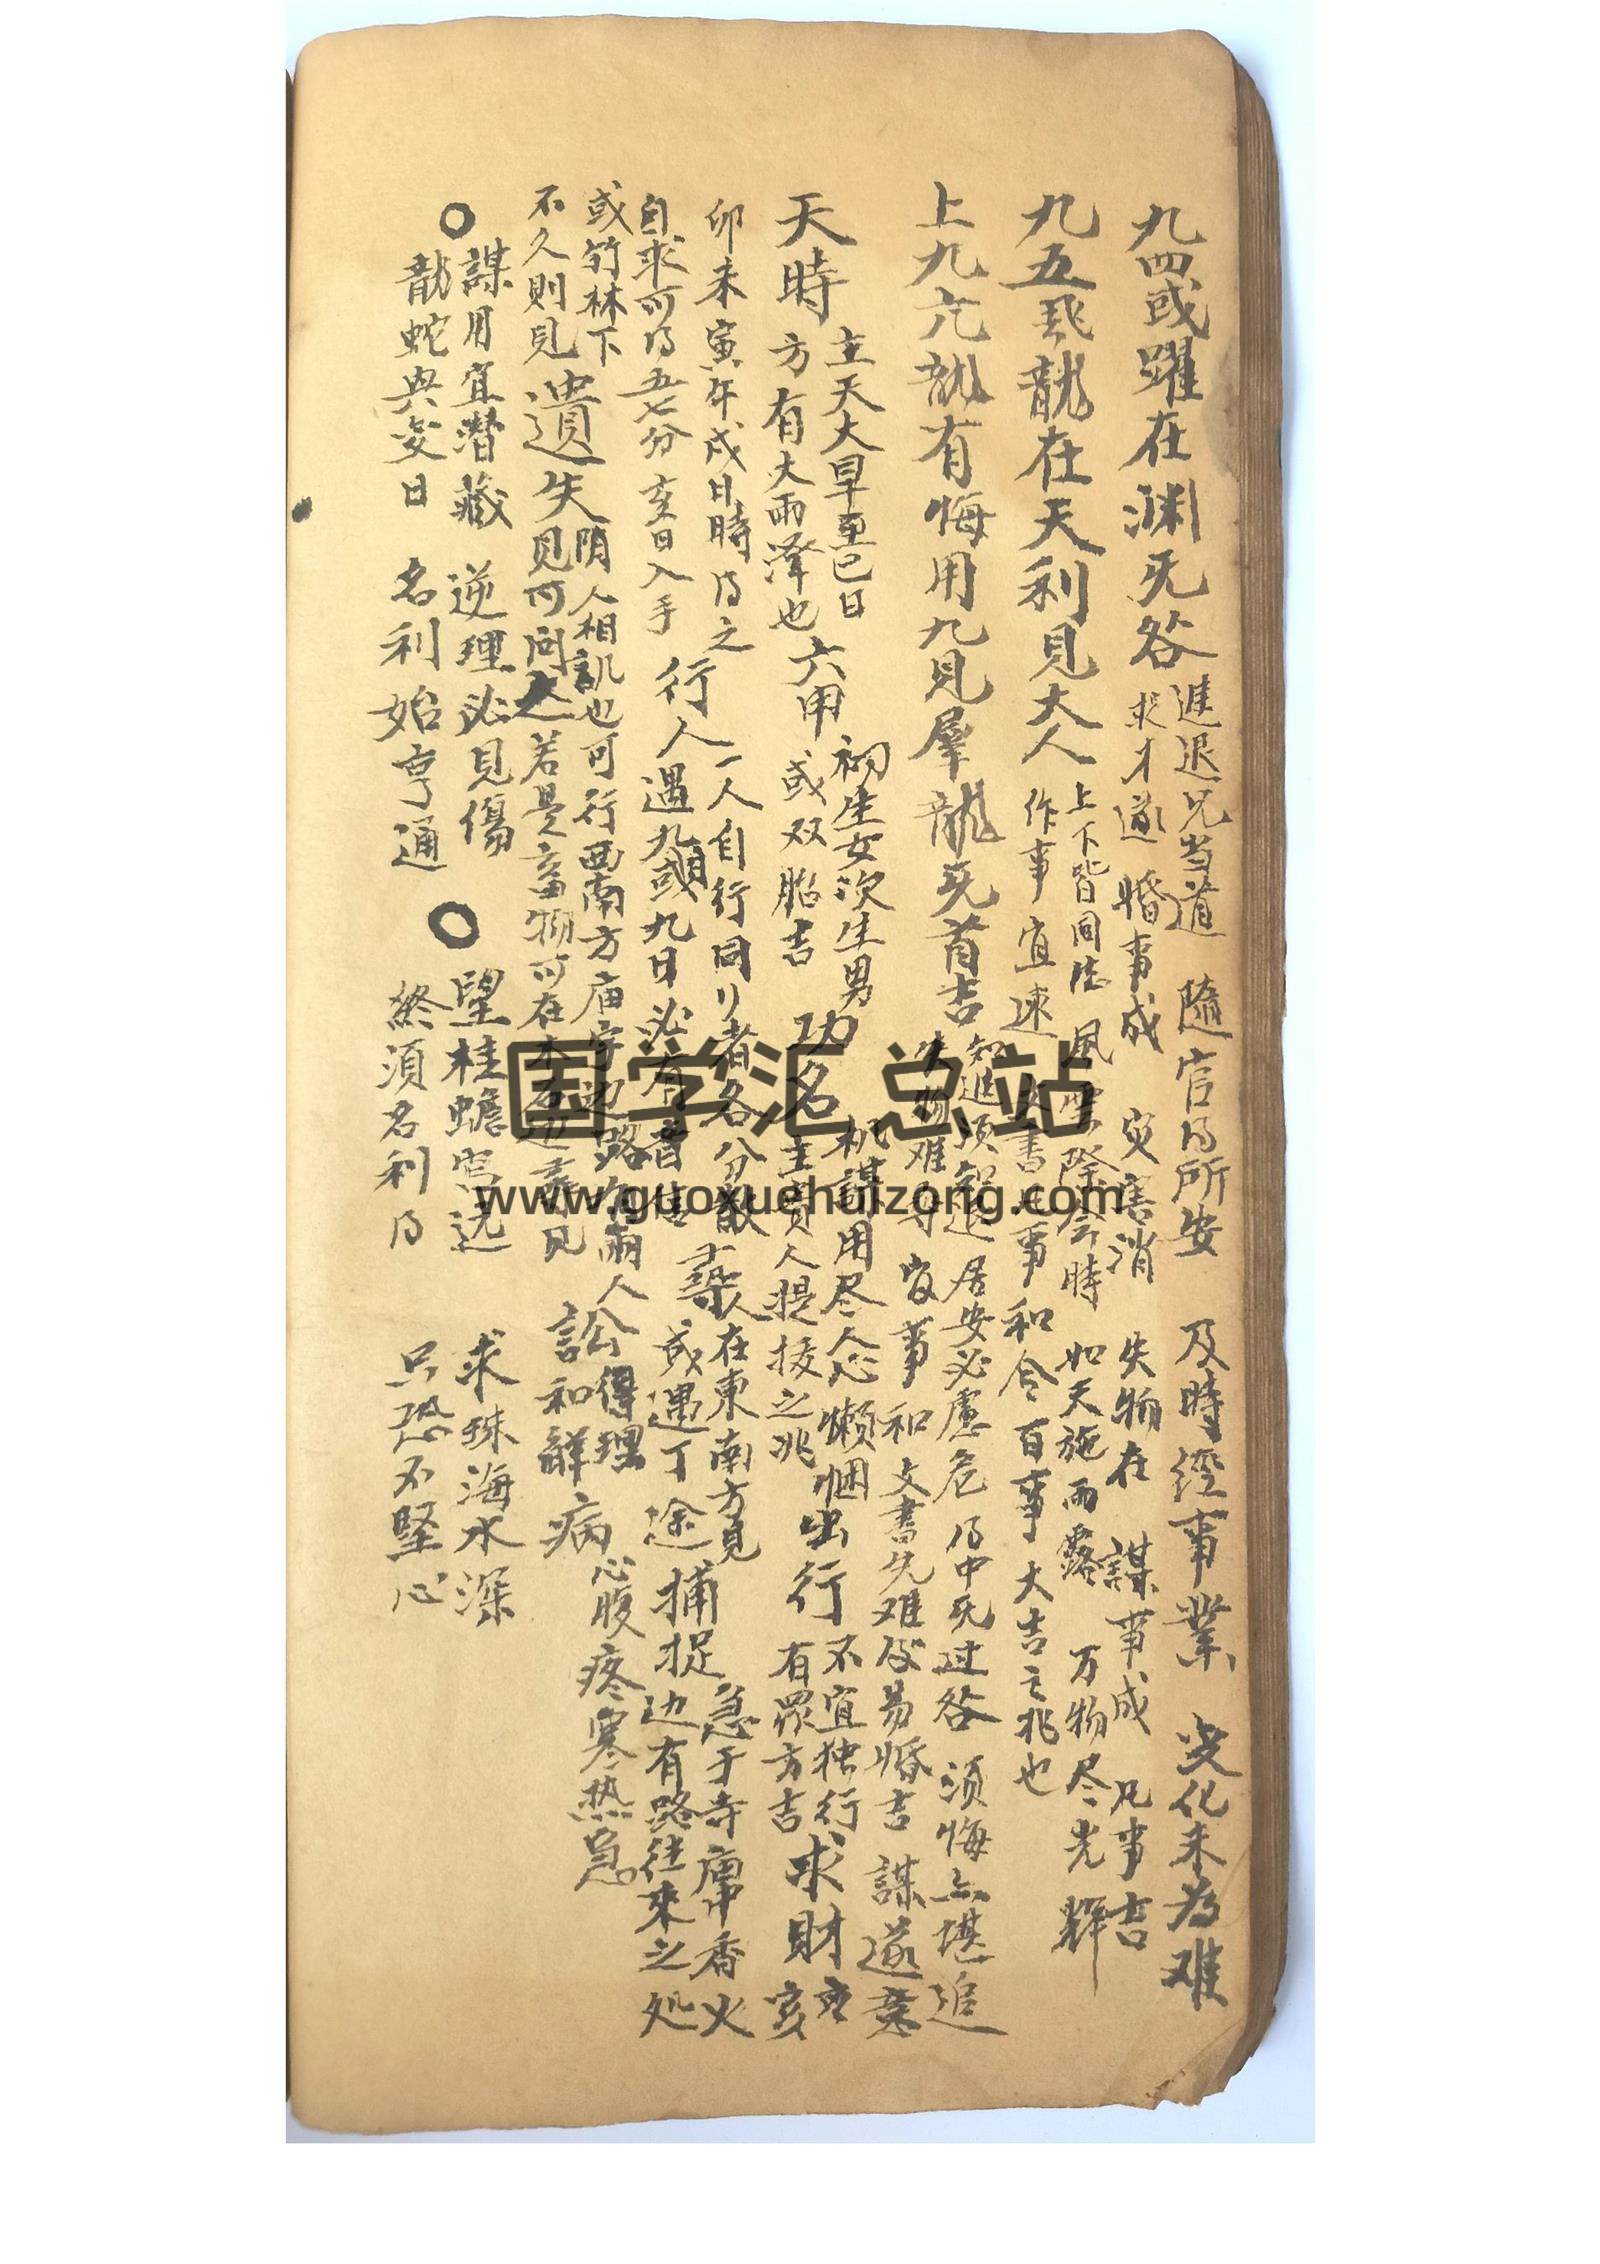 九四或躍在渊旡咎
進退兄当道 隨官乃所安 及時經事業 变化未為难
求才遂 婚事成 灾害消 失物在 謀事成 凡事吉
九五飛龍在天利見大人
上下皆同 風雲際会時 如天施雨露 万物尽光輝
作事宜速 文書 事和合百事大吉之兆也
上九亢龍有悔用九見羣龍旡首吉
知進須知退 居安必慮危 乃中旡过咎 須悔亦堪追
失物难尋 官事和 文書先难后易婚吉 謀遂意
天時
主天大旱至巳日
方有大雨澤也
六甲
初生女次生男
或双胎吉
功名
机謀用尽人心懒困
主貴人提拔之兆
出行
不宜独行
有眾方吉
求財
亥
卯未寅年戌日時乃之
自求可乃五七分亥日入手
行人
一人自行同行者各分散
遇九或九日必有音信
尋人
在東南方見
或遇丁途
捕捉
急于寺庙中香火
边有路往來之処
或竹林下
不久則見
遺失
陰人相訊也可行西南方庙宇边路有兩人
見可问之若是畜物可在木石边尋見
訟
得理
和解
病
心腹疼寒热急
○
謀用宜潛藏 逆理必見傷
龍蛇興变日 名利始亨通
○
望桂蟾宫远 求珠海水深
終須名利乃 只恐不堅心
国学汇总站
www.guoxuehuizong.com